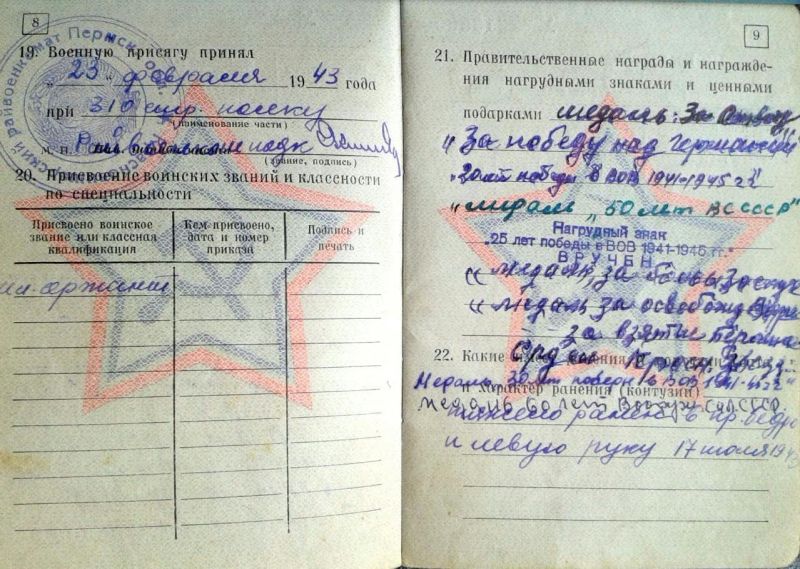 8
19. Военную присягу принял
„ 23 " февраля 1943 года
при 310 стр. полку
(наименование части)
м. п.
(звание, подпись)
20. Присвоение воинских званий и классности
по специальности
Присвоено воинское звание или классная квалификация
Кем присвоено, дата и номер приказа
Подпись и печать
сержант
9
21. Правительственные награды и награжде-
ния нагрудными знаками и ценными
подарками медаль: За отвагу
"За победу над Германией
"30 лет победы в ВОВ 1941-1945 гг"
"медаль "50 лет ВС СССР"
Нагрудный знак
"25 лет победы в ВОВ 1941-1945 гг."
ВРУЧЕН
"медаль за
"медаль за
за взятие Берлина
22. Какие
Медаль 30 лет победы в ВОВ 1941-45 гг"
и характер ранения (контузии)
медаль 60 лет Вооруж Сил СССР
тяжело ранен в пр. бедро
и левую руку 17 июля